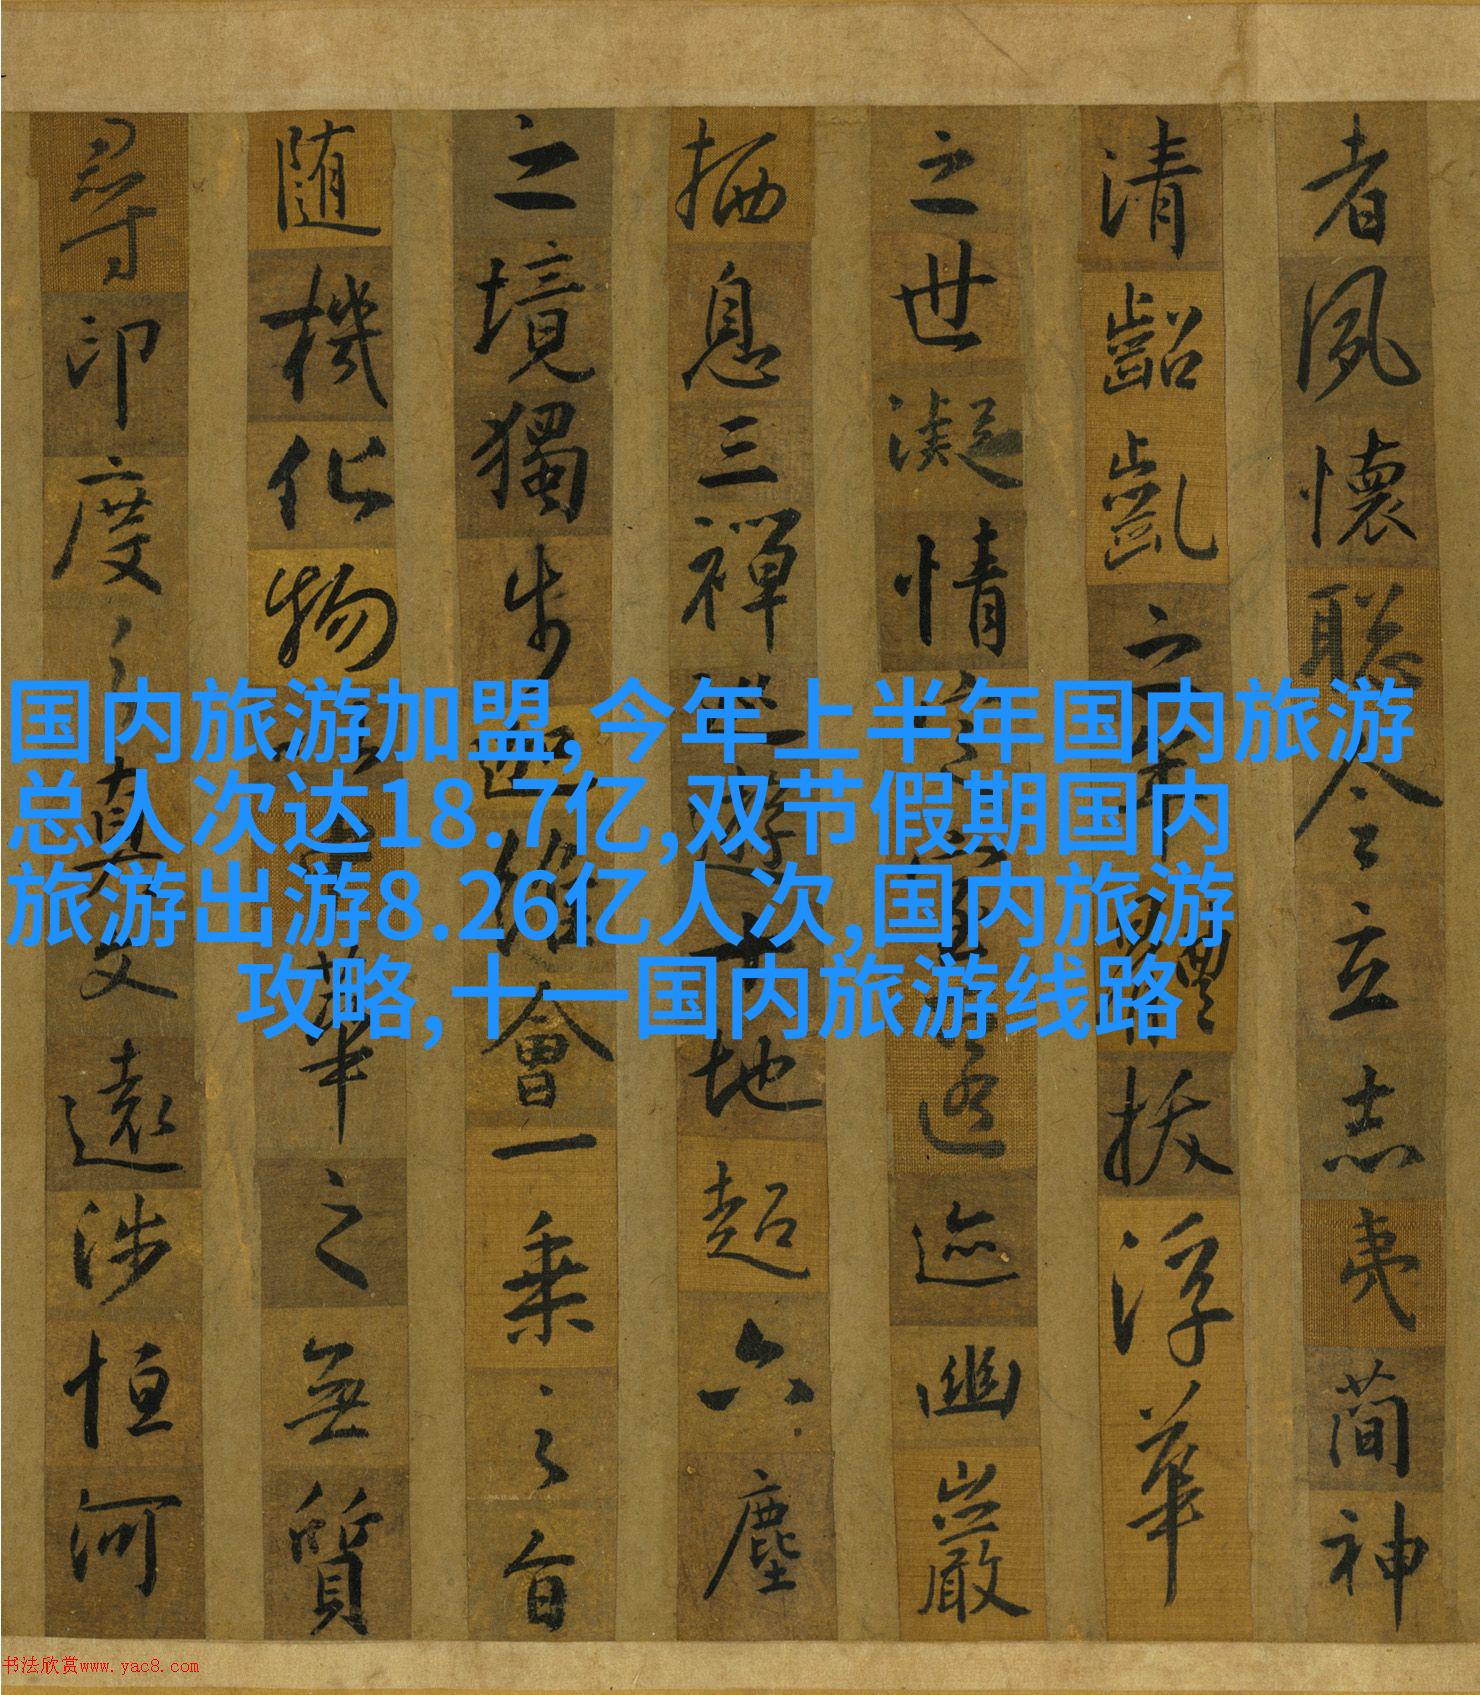 者夙懷聰令立志夷簡神
清齠齔之年體拔浮華
之世凝情定室匿迹幽巖
栖息三禪巡遊十地超六塵
之境獨步迦維會一乘之旨
隨機化物以中華之無質
尋印度之真文遠涉恒河
国内旅游加盟,今年上半年国内旅游
总人次达18.7亿,双节假期国内
旅游出游8.26亿人次,国内旅游
攻略,十一国内旅游线路
书法欣赏www.yac8.com